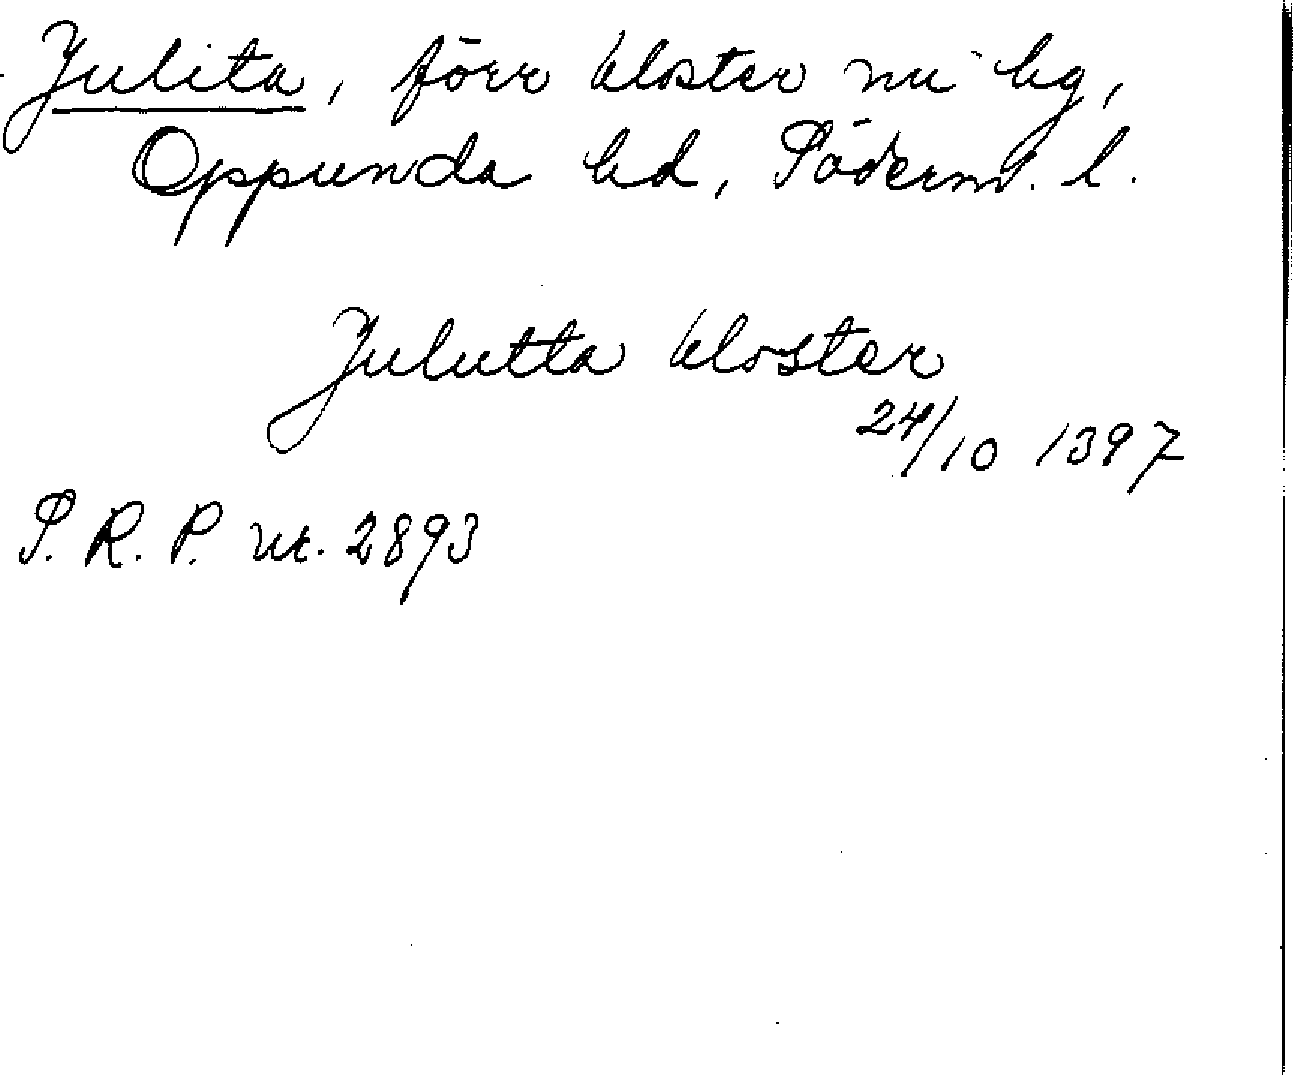 Julita, förr kloster nu hg,
Oppunda hd, Söderm. l.
Julutta kloster
24/10 1397
S. R. P. nr. 2893